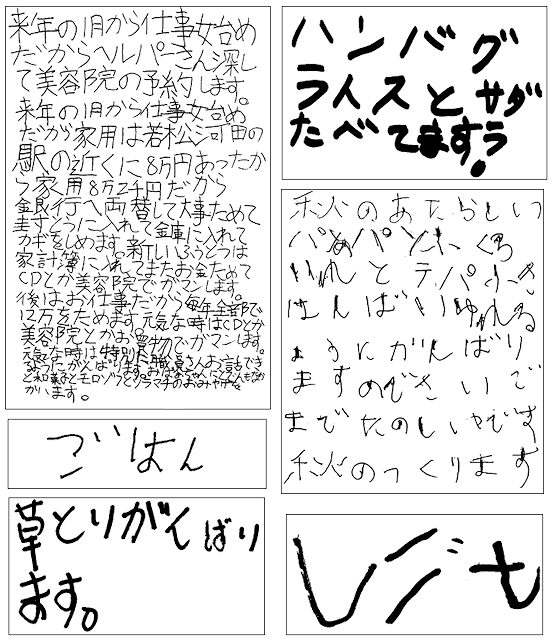 来年の1月から仕事女台め
だからヘルパーさん深し
て美容院の予約します。
来年の1月から仕事女台め
だから家用は若松河田の
駅の近くに8万円あったか
ら家用8万2千円だから
銀行へ両替して大事ためて
封とうに入れて金庫に入れて
カギをしめます。新しいふうとうは
家計簿に入れてまたお金ためて
CDとか美容院でガマンします
後はお仕事だから毎年全部で
12万をためます元気な時はCDとか
美容院とかお買物でガマンします。
元気な時は特別
がいます。
ごはん
草とりがんばり
ます。
ハンバグ
ライスとサダ
たべてますラ。
私のあたらしい
パン
と デパ
はんばいゆれる
ようにがんばり
ますのでさいご
までたのしいやです
私のつくります
しごも